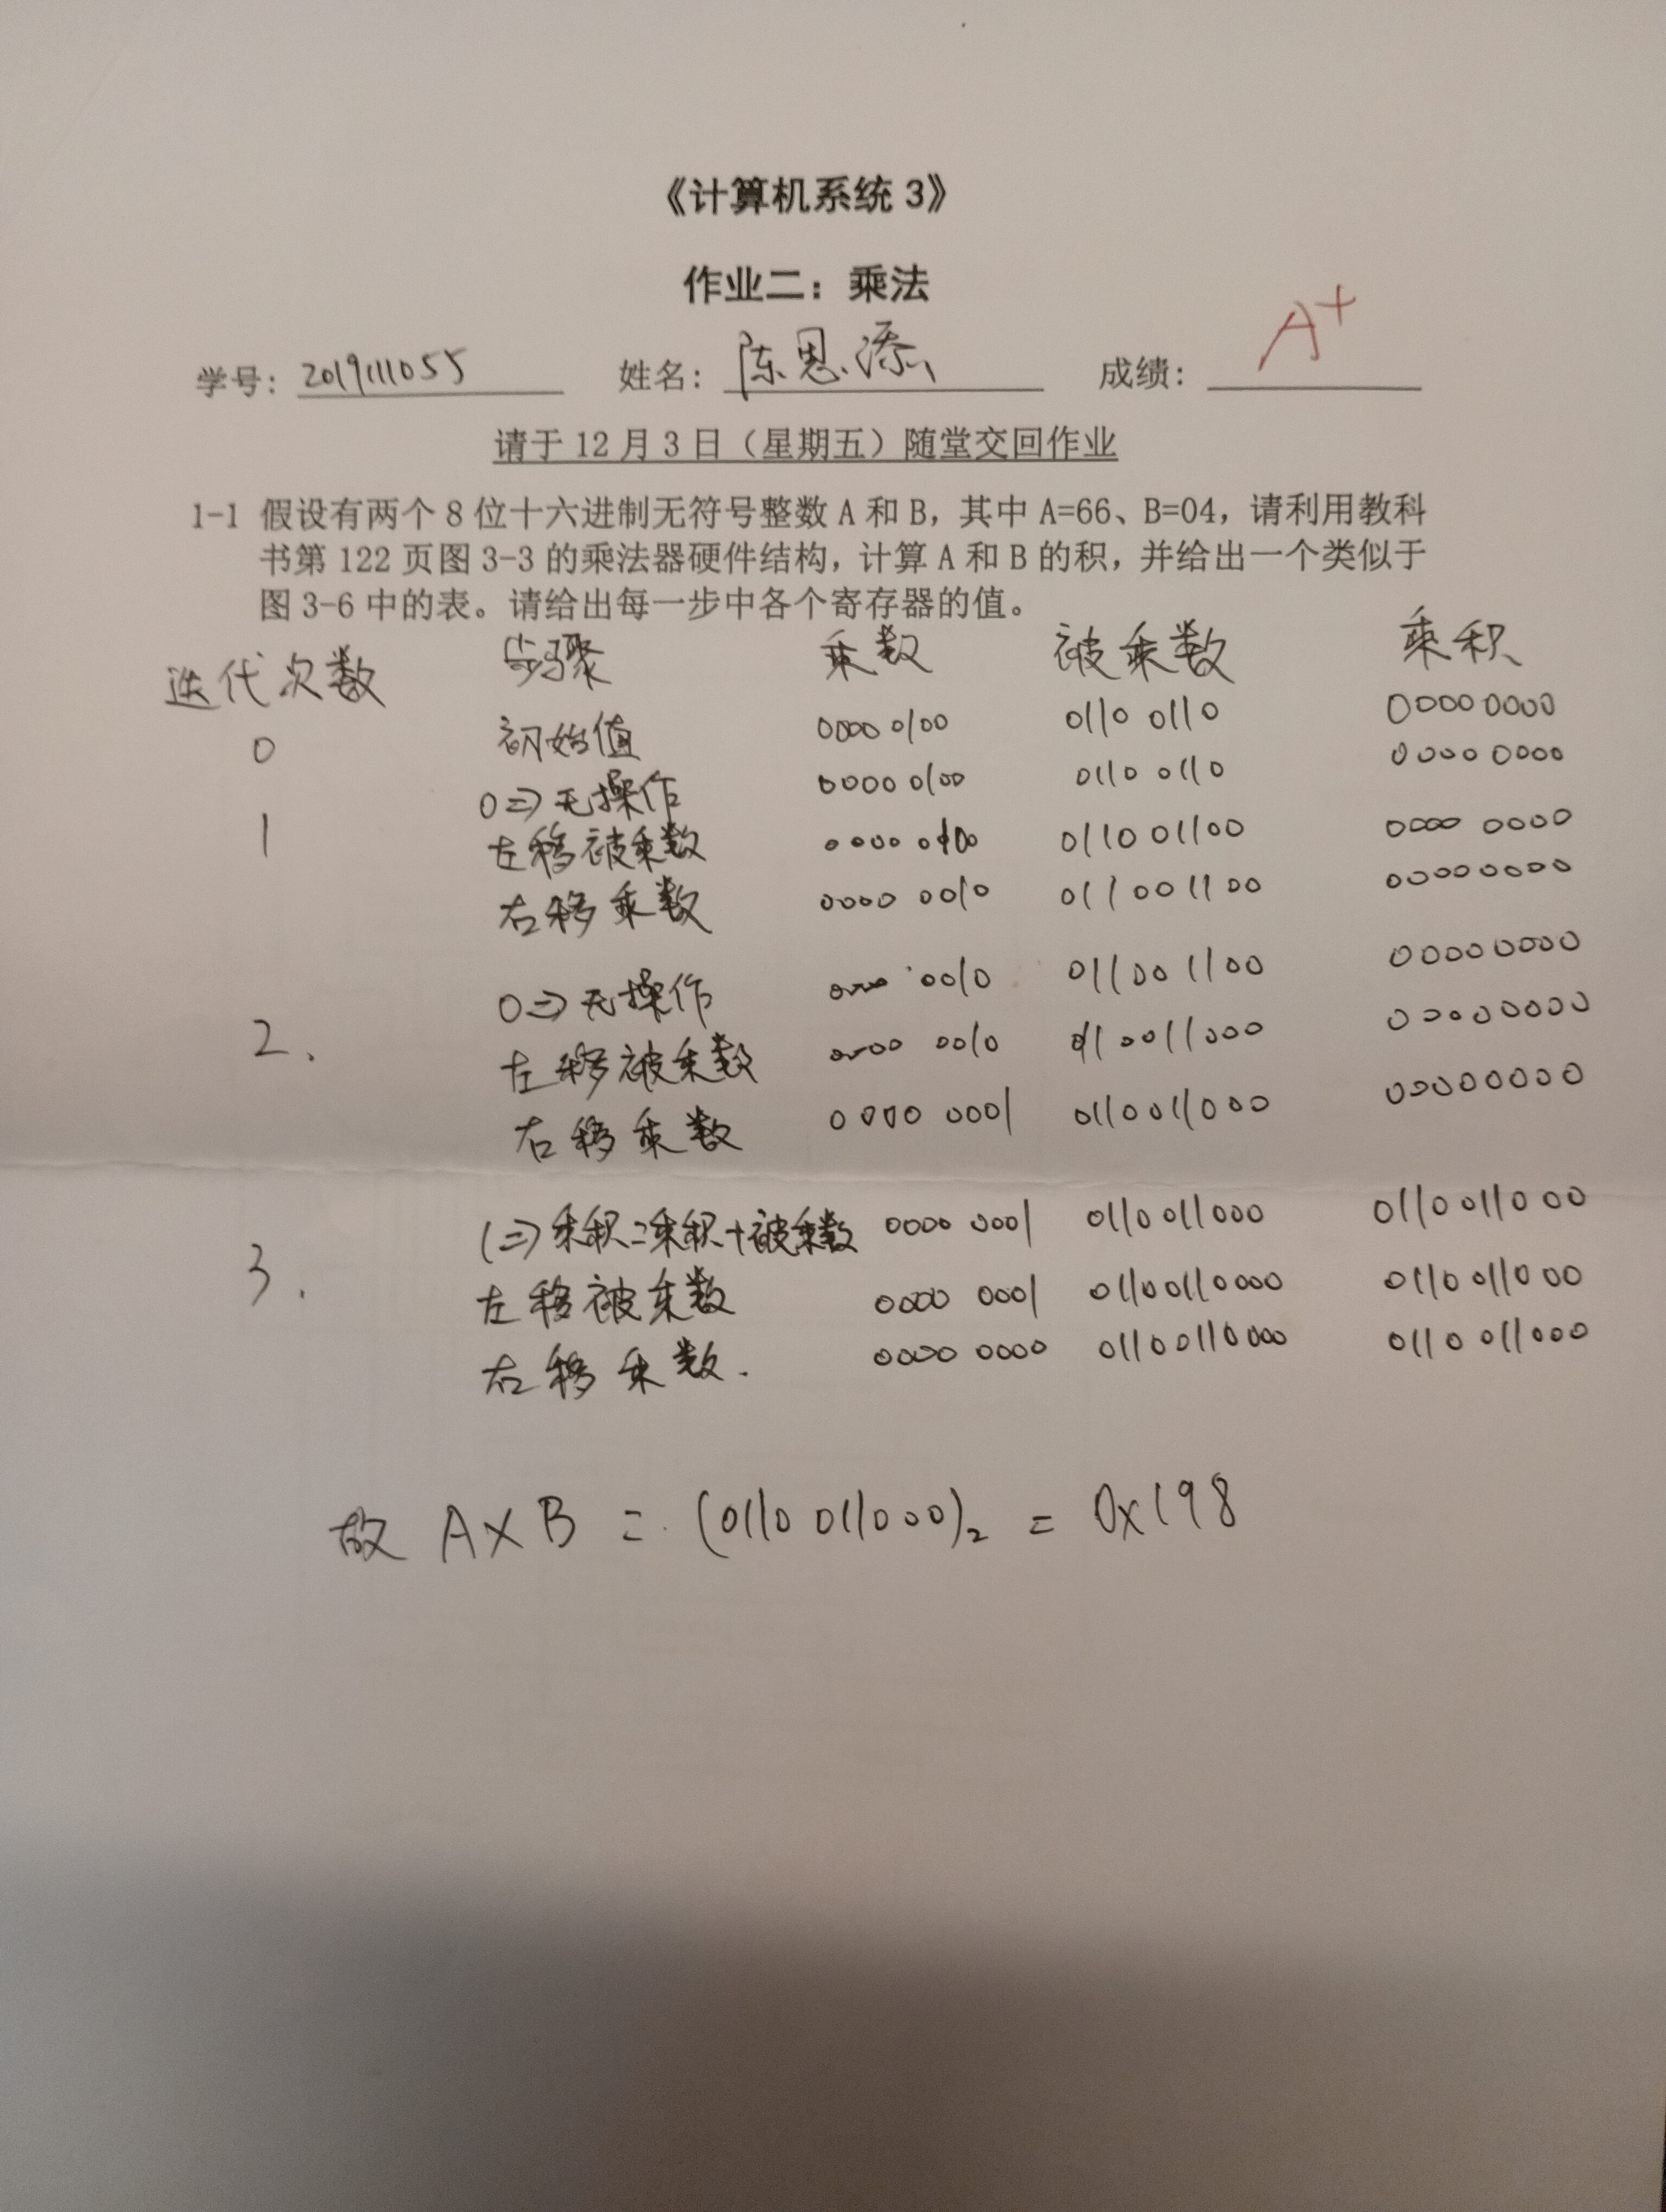 《计算机系统3》
作业二：乘法
学号：2019111055 姓名：陈思添 成绩：A+
请于12月3日（星期五）随堂交回作业
1-1 假设有两个8位十六进制无符号整数A和B，其中A=66、B=04，请利用教科
书第122页图3-3的乘法器硬件结构，计算A和B的积，并给出一个类似于
图3-6中的表。请给出每一步中各个寄存器的值。
迭代次数 步骤 乘数 被乘数 乘积
0 初始值 0000 0100 0110 0110 0000 0000
0⇒无操作 0000 0100 0110 0110 0000 0000
1 左移被乘数 0000 0100 0110 01100 0000 0000
右移乘数 0000 0010 0110 01100 00000000
0⇒无操作 0000 0010 011001100 00000000
2. 左移被乘数 0000 0010 0110011000 00000000
右移乘数 0000 0001 0110011000 00000000
1⇒乘积=乘积+被乘数 0000 0001 0110011000 0110011000
3. 左移被乘数 0000 0001 01100110000 0110011000
右移乘数. 0000 0000 01100110000 0110 011000
故 A×B = (0110 011000)₂ = 0x198